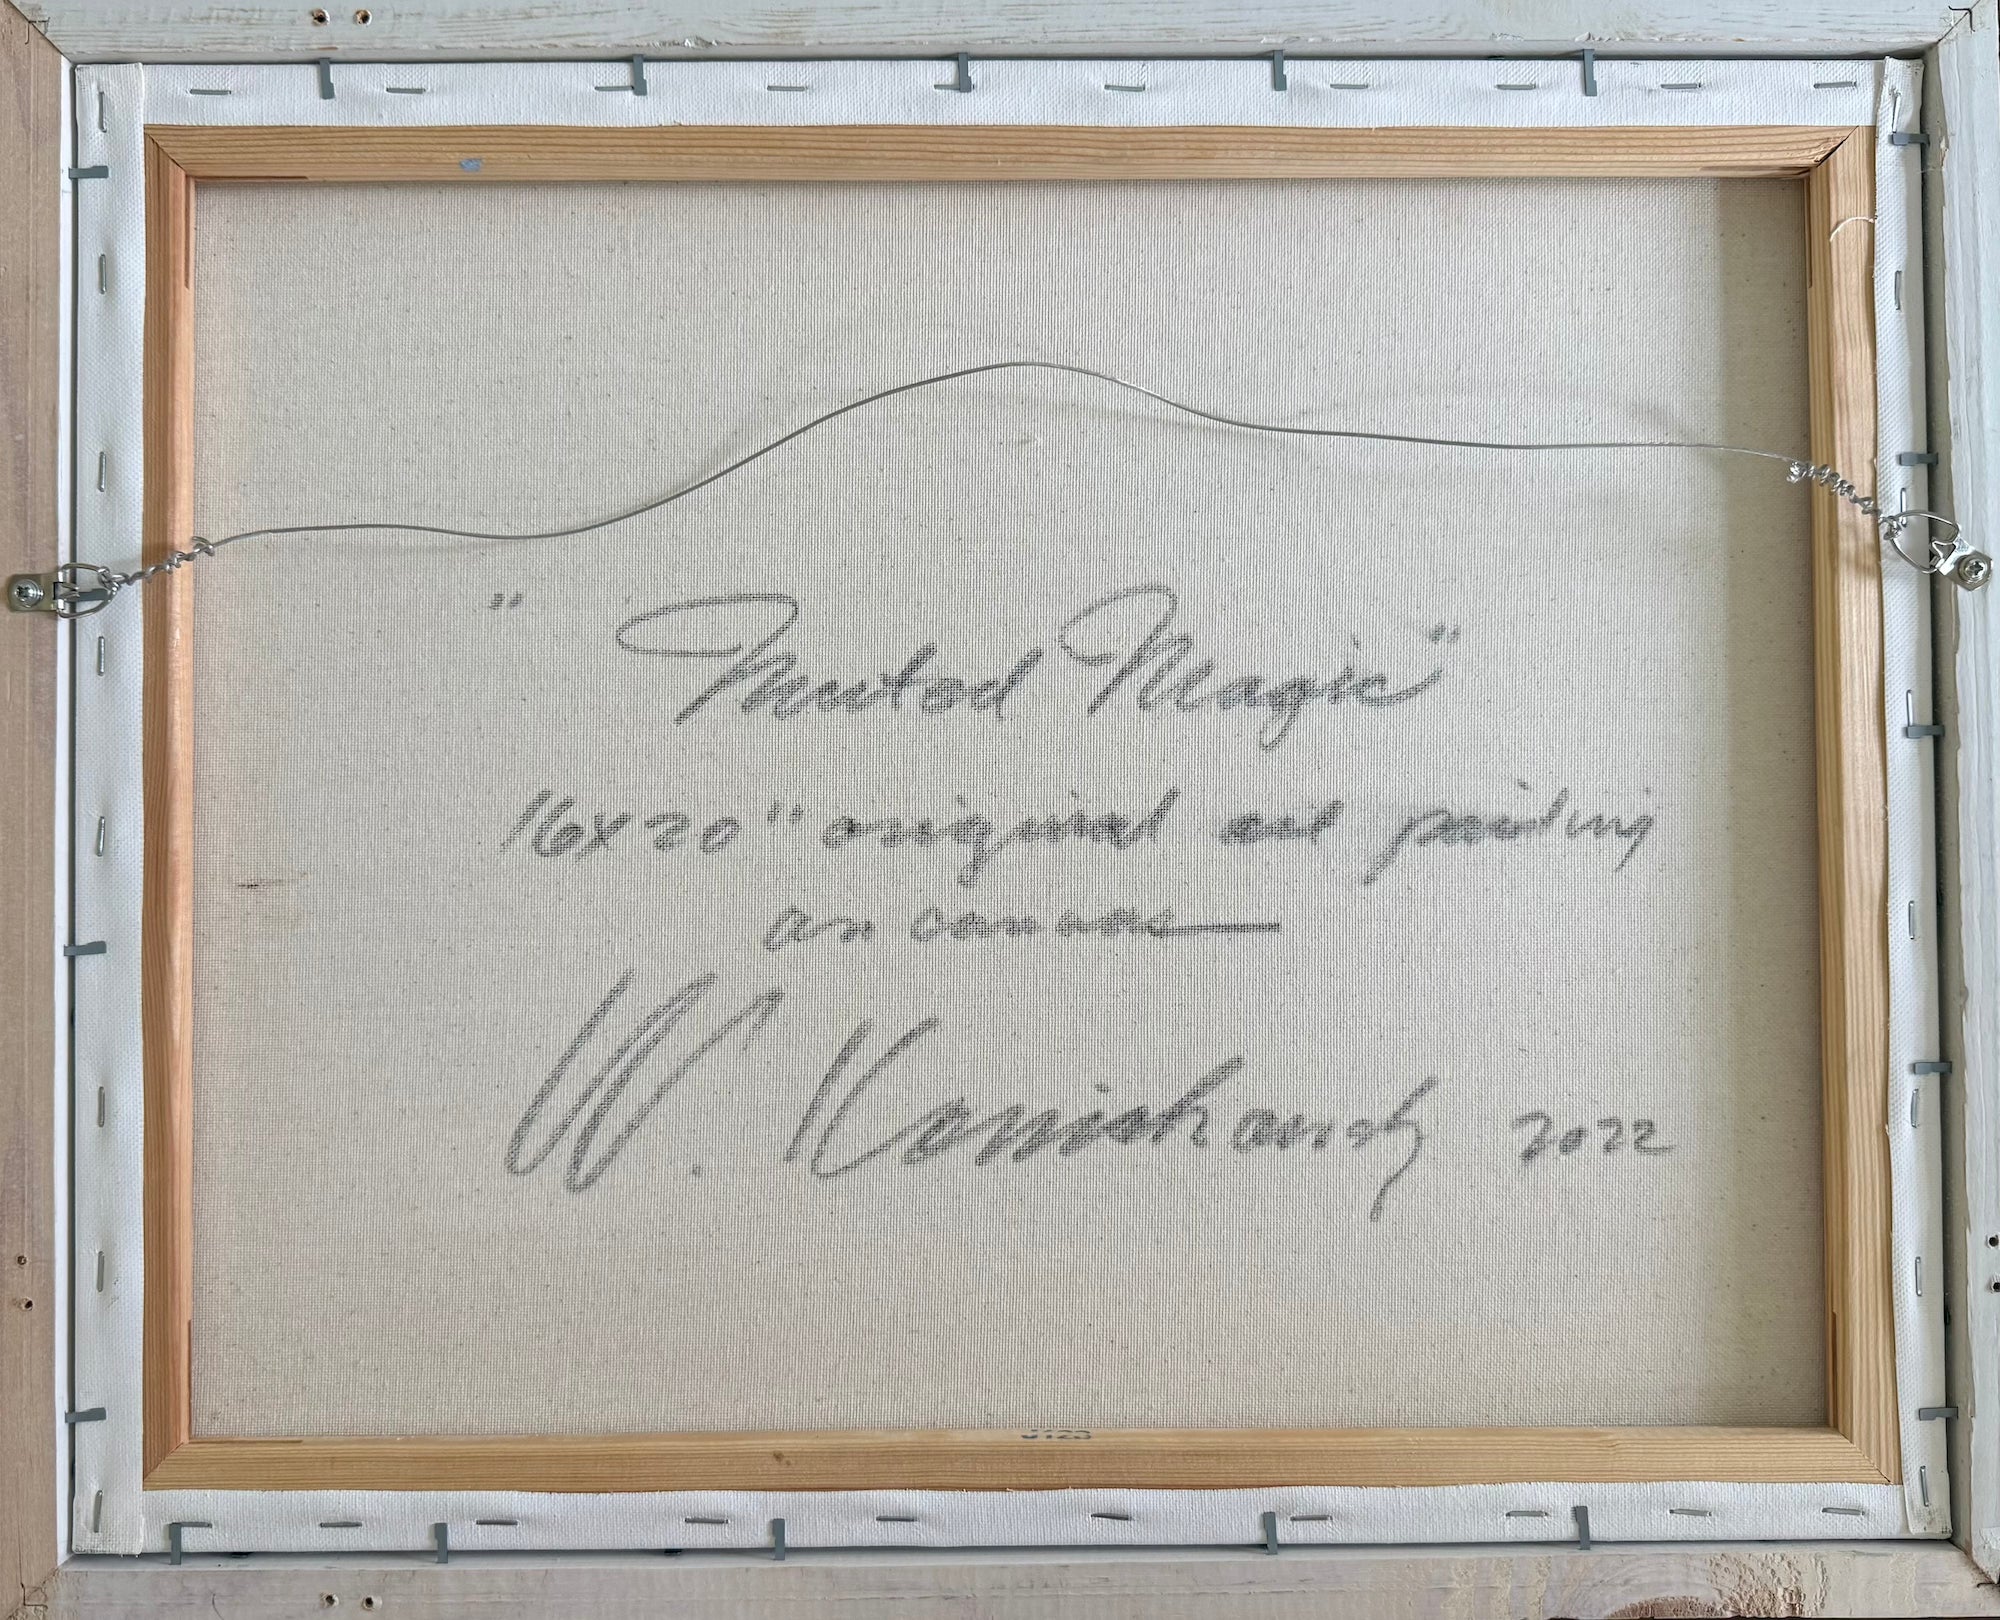 "Muted Magic"
16x20" original oil painting
on canvas
W. Konishowsky 2022
J123